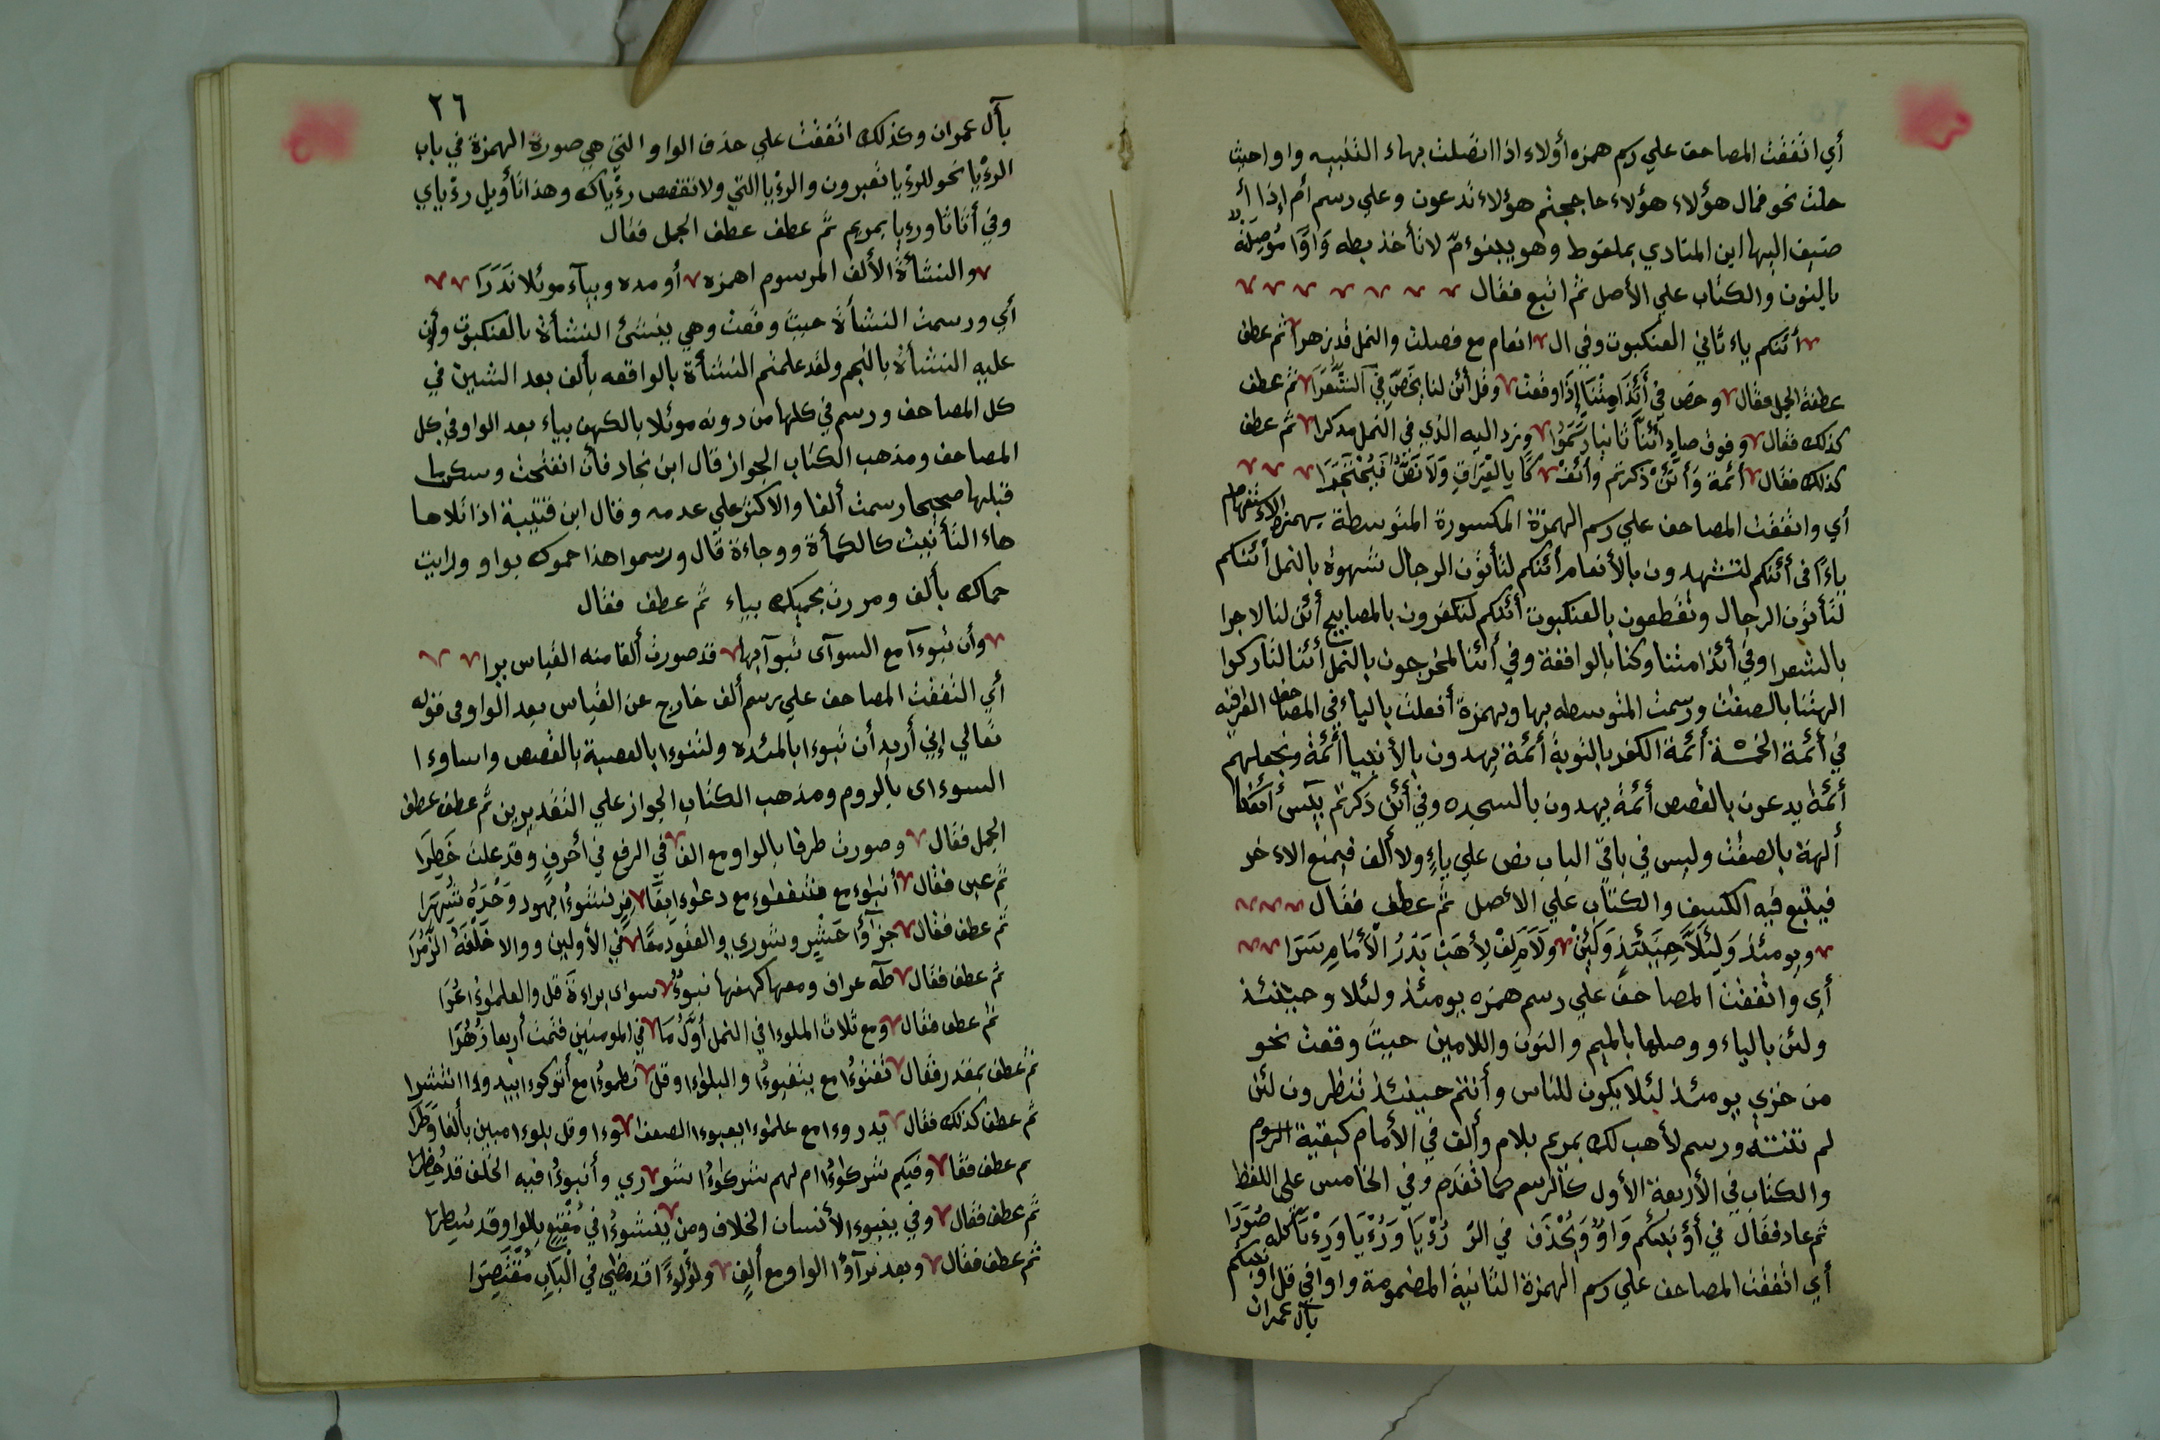 أي اتفقت المصاحف علي رسم همزه أولاء اذا اتصلت بهاء التنبيه واوا حيث
حلت نحو فمال هؤلاء هؤلاء حاججتم هؤلاء تدعون وعلي رسم أم إذا أ
ضيف اليها ابن المنادي بملفوط وهو يبنوءمّ لا تأخذ بطه وَاوًا مُوصِلَةً
بالنون والكتاب علي الأصل ثم اتبع فقال
أئنكم ياء ثاني العنكبوت وفي ال انعام مع فصلت والنمل قد زهرا ثم عطف
عطفة الجمل فقال وخص في أَئِذَا مِتْنَا إِذَا وقعت وقل أئن لنا يَخُصّ في الشُّعَرَا ثم عطف
كذلك فقال وفوق صاد أَئِنَّا ثانيا رَسَمُوا وزد اليه الذي في النمل مدكرا ثم عطف
كذلك فقال أئمة وَأَئِنْ ذكرتم وأئفكا بِالْعِرَاقِ وَلَا نَصٌّ فَيُحْتَجَرَا
أي واتفقت المصاحف علي رسم الهمزة المكسورة المتوسطة بهمزه الاستفهام
ياءً في أئنكم لتشهدون بالأنعام أئنكم لتأتون الرجال شهوة بالنمل أئنكم
لتأتون الرجال وتقطعون بالعنكبوت أئنكم لتكفرون بالمصابيح أئن لنا لاجرا
بالشعرا وفي أئذا متنا وكنا بالواقعة وفي أئنا لمخرجون بالنمل أئنا لتاركوا
الهتنا بالصفت ورسمت المتوسطه بها وبهمزة أفعلت بالياء في المصاحف العراقيه
في أئمة الخمسة أئمة الكفر بالتوبة أئمة يهدون بالأنبيا أئمة ونجعلهم
أئمة يدعون بالقصص أئمة يهدون بالسجده وفي أئن ذكرتم بيس أئفكا
ألهة بالصفت وليس في باقي الباب نص علي ياءٍ ولا ألف فيمنع الاخر
فيتبع فيه الكشف والكتاب علي الأصل ثم عطف فقال
ويومئذ وَلِئَلَّا حِينَئِذٍ وَلَئِنْ وَلَامَ لِفْ لِأَهَبْ بَدْرُ الْأَمَامِ سَرَا
أي واتفقت المصاحف علي رسم همزه يومئذ ولئلا وحينئذ
ولئن بالياء ووصلها بالميم والنون واللامين حيث وقعت نحو
من خزي يومئذ لئلا يكون للناس وأنتم حينئذ تنظرون لئن
لم تنته ورسم لأهب لك بمريم بلام وألف في الأمام كبقية الرسوم
والكتاب في الأربعة الأول كالرسم كما تقدم وفي الخامس على اللفظ
ثم عاد فقال في أؤنبئكم وَاوٌ وَيُحْذَفُ في الرّ رُءْيَا وَرُءْيَا وَرِءْيًا كله صُوَرَا
أي اتفقت المصاحف علي رسم الهمزة الثانية المضمومة واوا في قل أؤنبئكم
بآل عمران
٢٦
بآل عمران وكذلك اتفقت علي حذف الواو التي هي صورة الهمزة في باب
الرءيا نحو للرءيا تعبرون والرءيا التي ولا تقصص رءياك وهذا تأويل رءياي
وفي أثاثا ورءيا بمريم ثم عطف عطف الجمل فقال
والنشأة الألف المرسوم اهمزه أو مده وبيآء موئلا نَدَرَا
أي ورسمت النشأة حيث وقعت وهي ينشئ النشأة بالعنكبوت وأن
عليه النشأة بالنجم ولقد علمتم النشأة بالواقعه بألف بعد الشين في
كل المصاحف ورسم في كلها من دونه موئلا بالكهف بياء بعد الواو في كل
المصاحف ومذهب الكتاب الجواز قال ابن نجاد فان انفتحت وسكن ما
قبلها صحيحا رسمت ألفا والاكثر علي عدمه وقال ابن قتيبة اذا تلاحا
هاء التأنيث كالكمأة ووجاءة قال ورسموا هذا حموك بواو ورايت
حماك بألف ومررت بحميك بياء ثم عطف فقال
وأن تبوءآ مع السوآى تنوآ بها قد صورت ألفا منه القياس برا
أي اتفقت المصاحف علي رسم ألف خارج عن القياس بعد الواو في قوله
تعالي إني أريد أن تبوءا بالمئده ولتنوءا بالعصبة بالقصص واساوءا
السوءاى بالروم ومذهب الكتاب الجواز علي التقديرين ثم عطف عطف
الجمل فقال وصورت طرفا بالواو مع الف في الرفع في أحرفٍ وقد علت خَطَرَا
ثم عين فقال أنبؤا مع شفعؤا مع دعؤا بِغَافِرٍ نشؤا بهود وَحْدَهُ شُهِرَا
ثم عطف فقال جزآؤا حَشْرٍ وشوري والعقود معًا في الأولين ووالا خَلْفَهُ الزُّمَرَا
ثم عطف فقال طه عراق ومعها كهفها نبؤٌا سواى براءة قل والعلمؤا عُرَا
ثم عطف فقال ومع ثلاث الملوءا في النمل أوَّلُ مَا في المومنين فتمت أربعا زُهُرَا
ثم عطف بمقدر فقال تفتؤا مع يتفيؤا والبلؤا وقل تظمؤا مع أتوكؤا يبدؤا انتشرا
ثم عطف كذلك فقال يدرؤا مع علمؤا يعبؤا الضعفاؤا وقل بلؤا مبين بألفا وَطَرَا
ثم عطف فقال وفيكم شركؤا ام لهم شركؤا شوري وأنبؤا فيه الخلف قد خَطَرَا
ثم عطف فقال وفي ينبؤا الأنسان الخلاف ومن ينشؤا في مُقْنِعٍ بالواو قد سُطِرَا
ثم عطف فقال وبعد رآؤا الواو مع ألِفٍ ولؤلؤًا قد مضى في الْبَابِ مُقْتَصِرَا